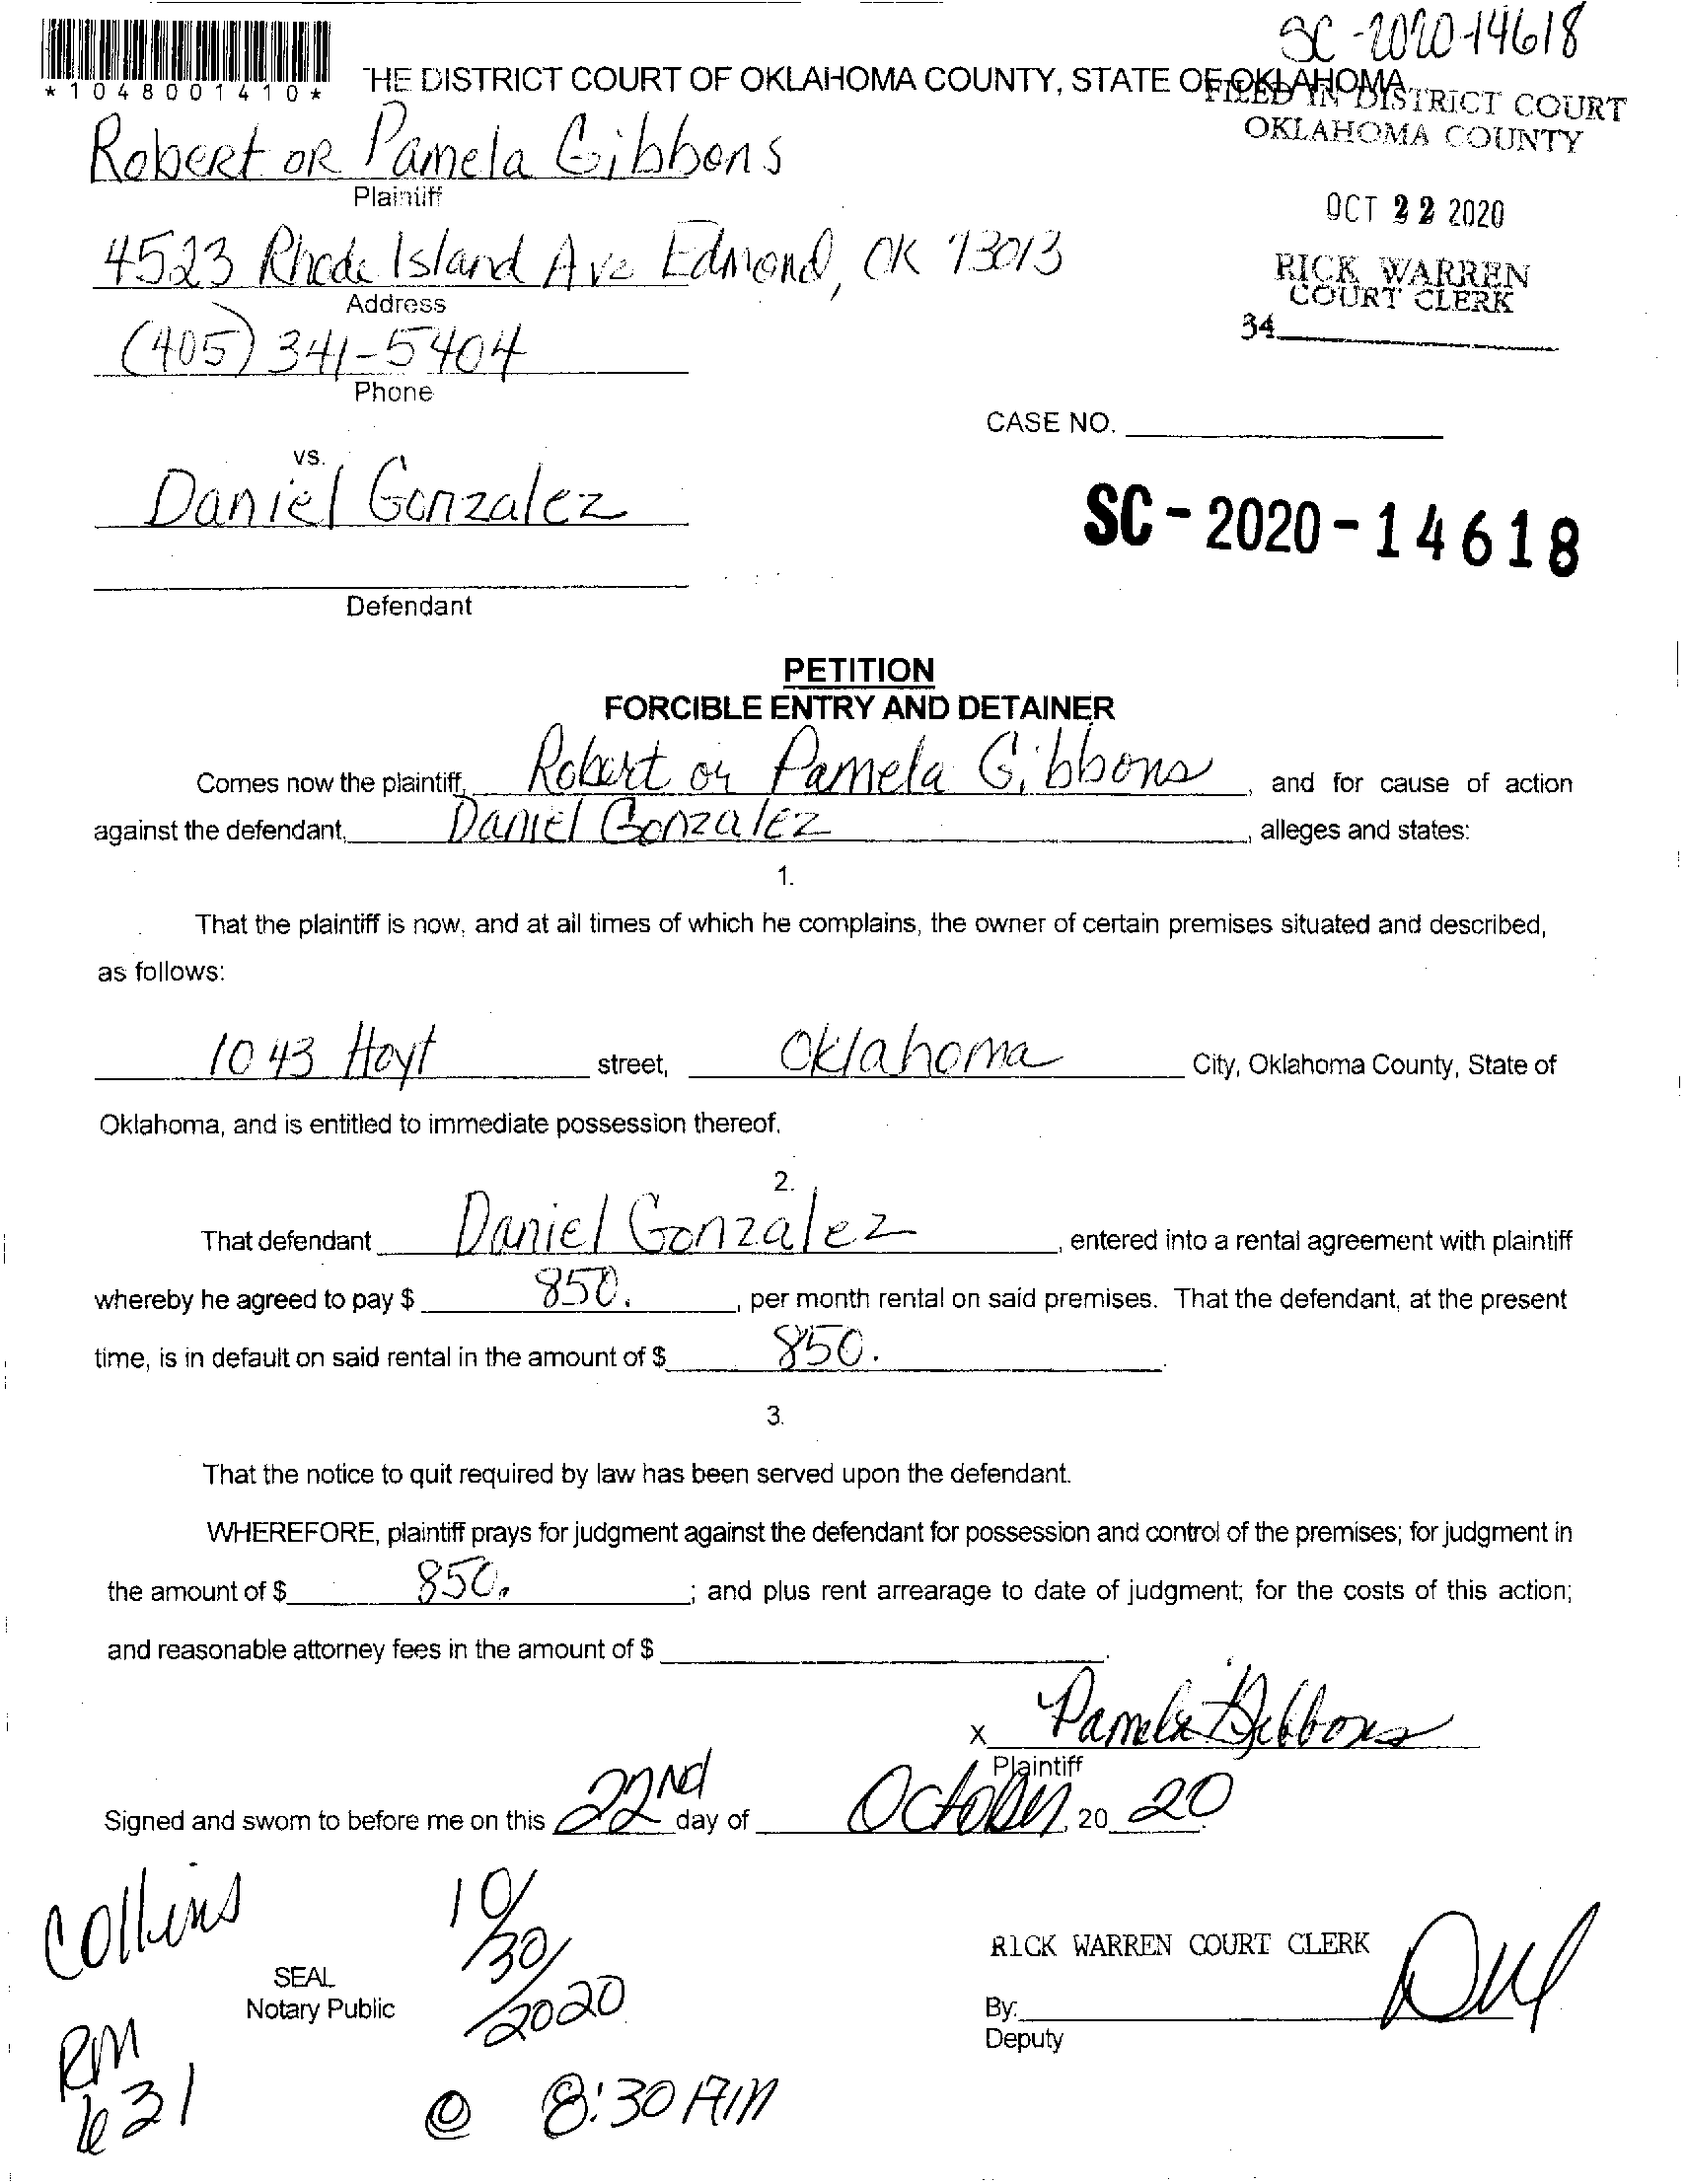 SC-2020-14618
*1048001410*
THE DISTRICT COURT OF OKLAHOMA COUNTY, STATE OF OKLAHOMA
FILED IN DISTRICT COURT
OKLAHOMA COUNTY
Robert OR Pamela Gibbons
Plaintiff
OCT 22 2020
4523 Rhode Island Ave Edmond, OK 73013
Address
RICK WARREN
COURT CLERK
34
(405) 341-5404
Phone
CASE NO.
vs.
Daniel Gonzalez
SC-2020-14618
Defendant
PETITION
FORCIBLE ENTRY AND DETAINER
Comes now the plaintiff, Robert or Pamela Gibbons, and for cause of action
against the defendant, Daniel Gonzalez, alleges and states:
1.
That the plaintiff is now, and at all times of which he complains, the owner of certain premises situated and described,
as follows:
1043 Hoyt street, Oklahoma City, Oklahoma County, State of
Oklahoma, and is entitled to immediate possession thereof.
2.
That defendant Daniel Gonzalez, entered into a rental agreement with plaintiff
whereby he agreed to pay $ 850., per month rental on said premises. That the defendant, at the present
time, is in default on said rental in the amount of $ 850.
3.
That the notice to quit required by law has been served upon the defendant.
WHEREFORE, plaintiff prays for judgment against the defendant for possession and control of the premises; for judgment in
the amount of $ 850. ; and plus rent arrearage to date of judgment; for the costs of this action;
and reasonable attorney fees in the amount of $
X Pamela Gibbons
Plaintiff
Signed and sworn to before me on this 22nd day of October, 20 20.
Collins
10/30/2020
RICK WARREN COURT CLERK
SEAL
Notary Public
By:
Deputy
RM
631
@ 8:30 AM